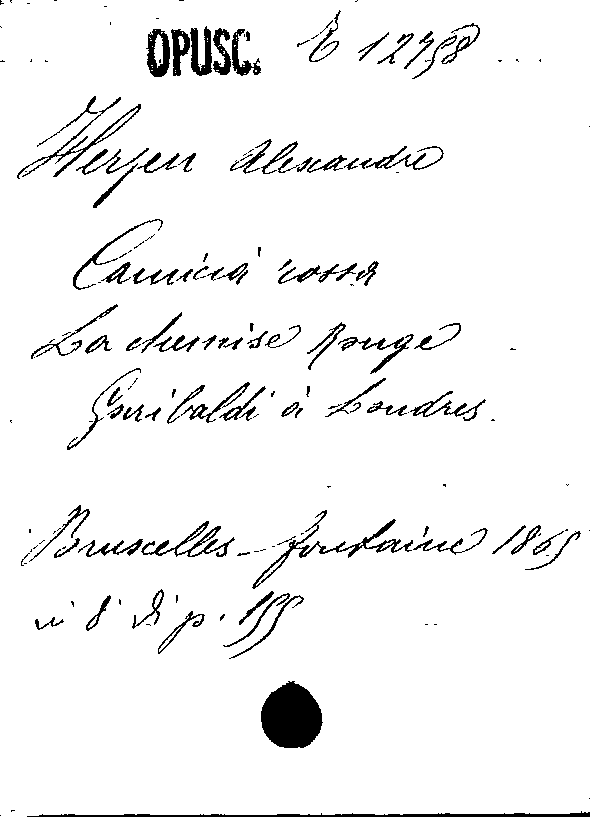 OPUSC. E 12758
Herzen Alexandre
Camicia rossa
La chemise Rouge
Garibaldi à Londres.
Bruxelles - Fontaine 1865
in 8° di p. 155